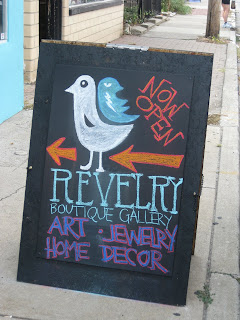 NOW
OPEN
REVELRY
BOUTIQUE GALLERY
ART · JEWELRY
HOME DECOR